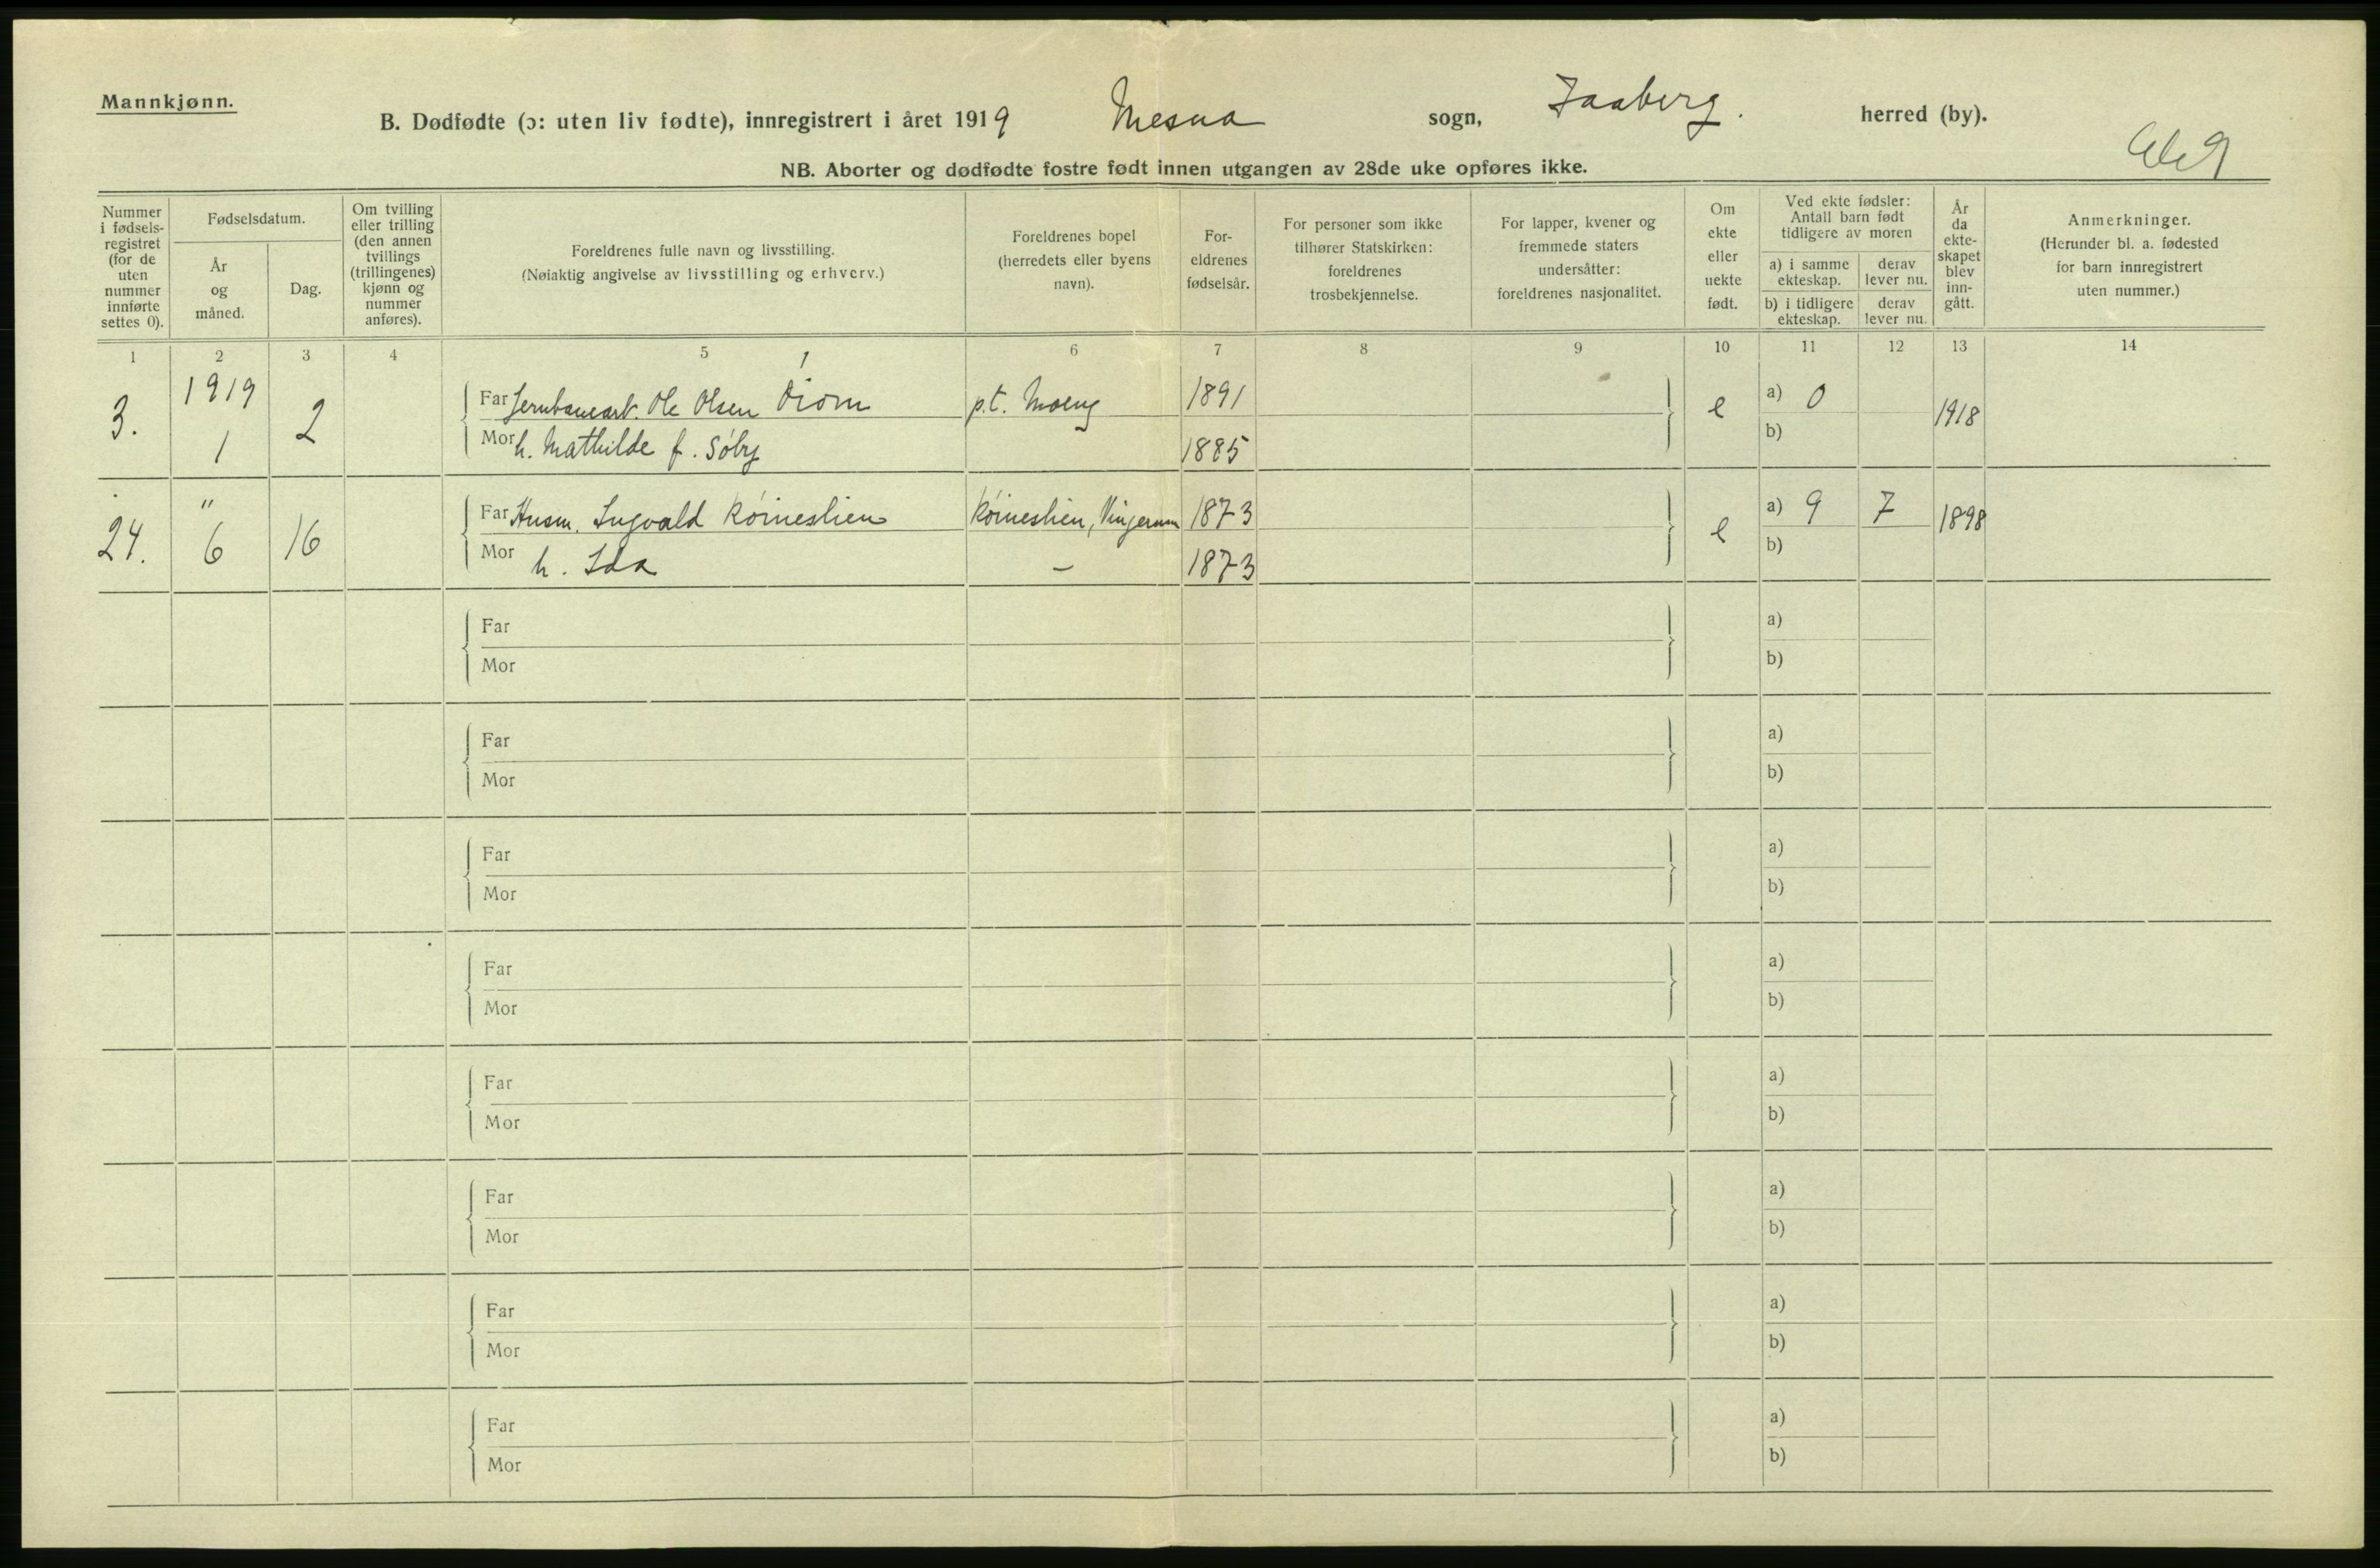 Mannkjønn.
B. Dødfødte (ɔ: uten liv fødte), innregistrert i året 1919 Mesna sogn, Faaberg. herred (by).
NB. Aborter og dødfødte fostre født innen utgangen av 28de uke opføres ikke.
Nummer i fødsels-registret (for de uten nummer innførte settes 0).
Fødselsdatum.
År og måned.
Dag.
Om tvilling eller trilling (den annen tvillings (trillingenes) kjønn og nummer anføres).
Foreldrenes fulle navn og livsstilling.
(Nøiaktig angivelse av livsstilling og erhverv.)
Foreldrenes bopel (herredets eller byens navn).
For-eldrenes fødselsår.
For personer som ikke tilhører Statskirken: foreldrenes trosbekjennelse.
For lapper, kvener og fremmede staters undersåtter: foreldrenes nasjonalitet.
Om ekte eller uekte født.
Ved ekte fødsler: Antall barn født tidligere av moren
a) i samme ekteskap.
derav lever nu.
b) i tidligere ekteskap.
derav lever nu.
År da ekte-skapet blev inn-gått.
Anmerkninger.
(Herunder bl. a. fødested for barn innregistrert uten nummer.)
1 2 3 4 5 6 7 8 9 10 11 12 13 14
3. 1919 1 2 Far Jernbanearb. Ole Olsen p.t. Moelv 1891 e a) 0 1918
Mor h. Mathilde f. Søby 1885 b)
24. " 6 16 Far Husm. Ingvald Roineslien Roineslien, Vingerum 1873 e a) 9 7 1898
Mor h. Ida – 1873 b)
Far a)
Mor b)
Far a)
Mor b)
Far a)
Mor b)
Far a)
Mor b)
Far a)
Mor b)
Far a)
Mor b)
Far a)
Mor b)
Far a)
Mor b)